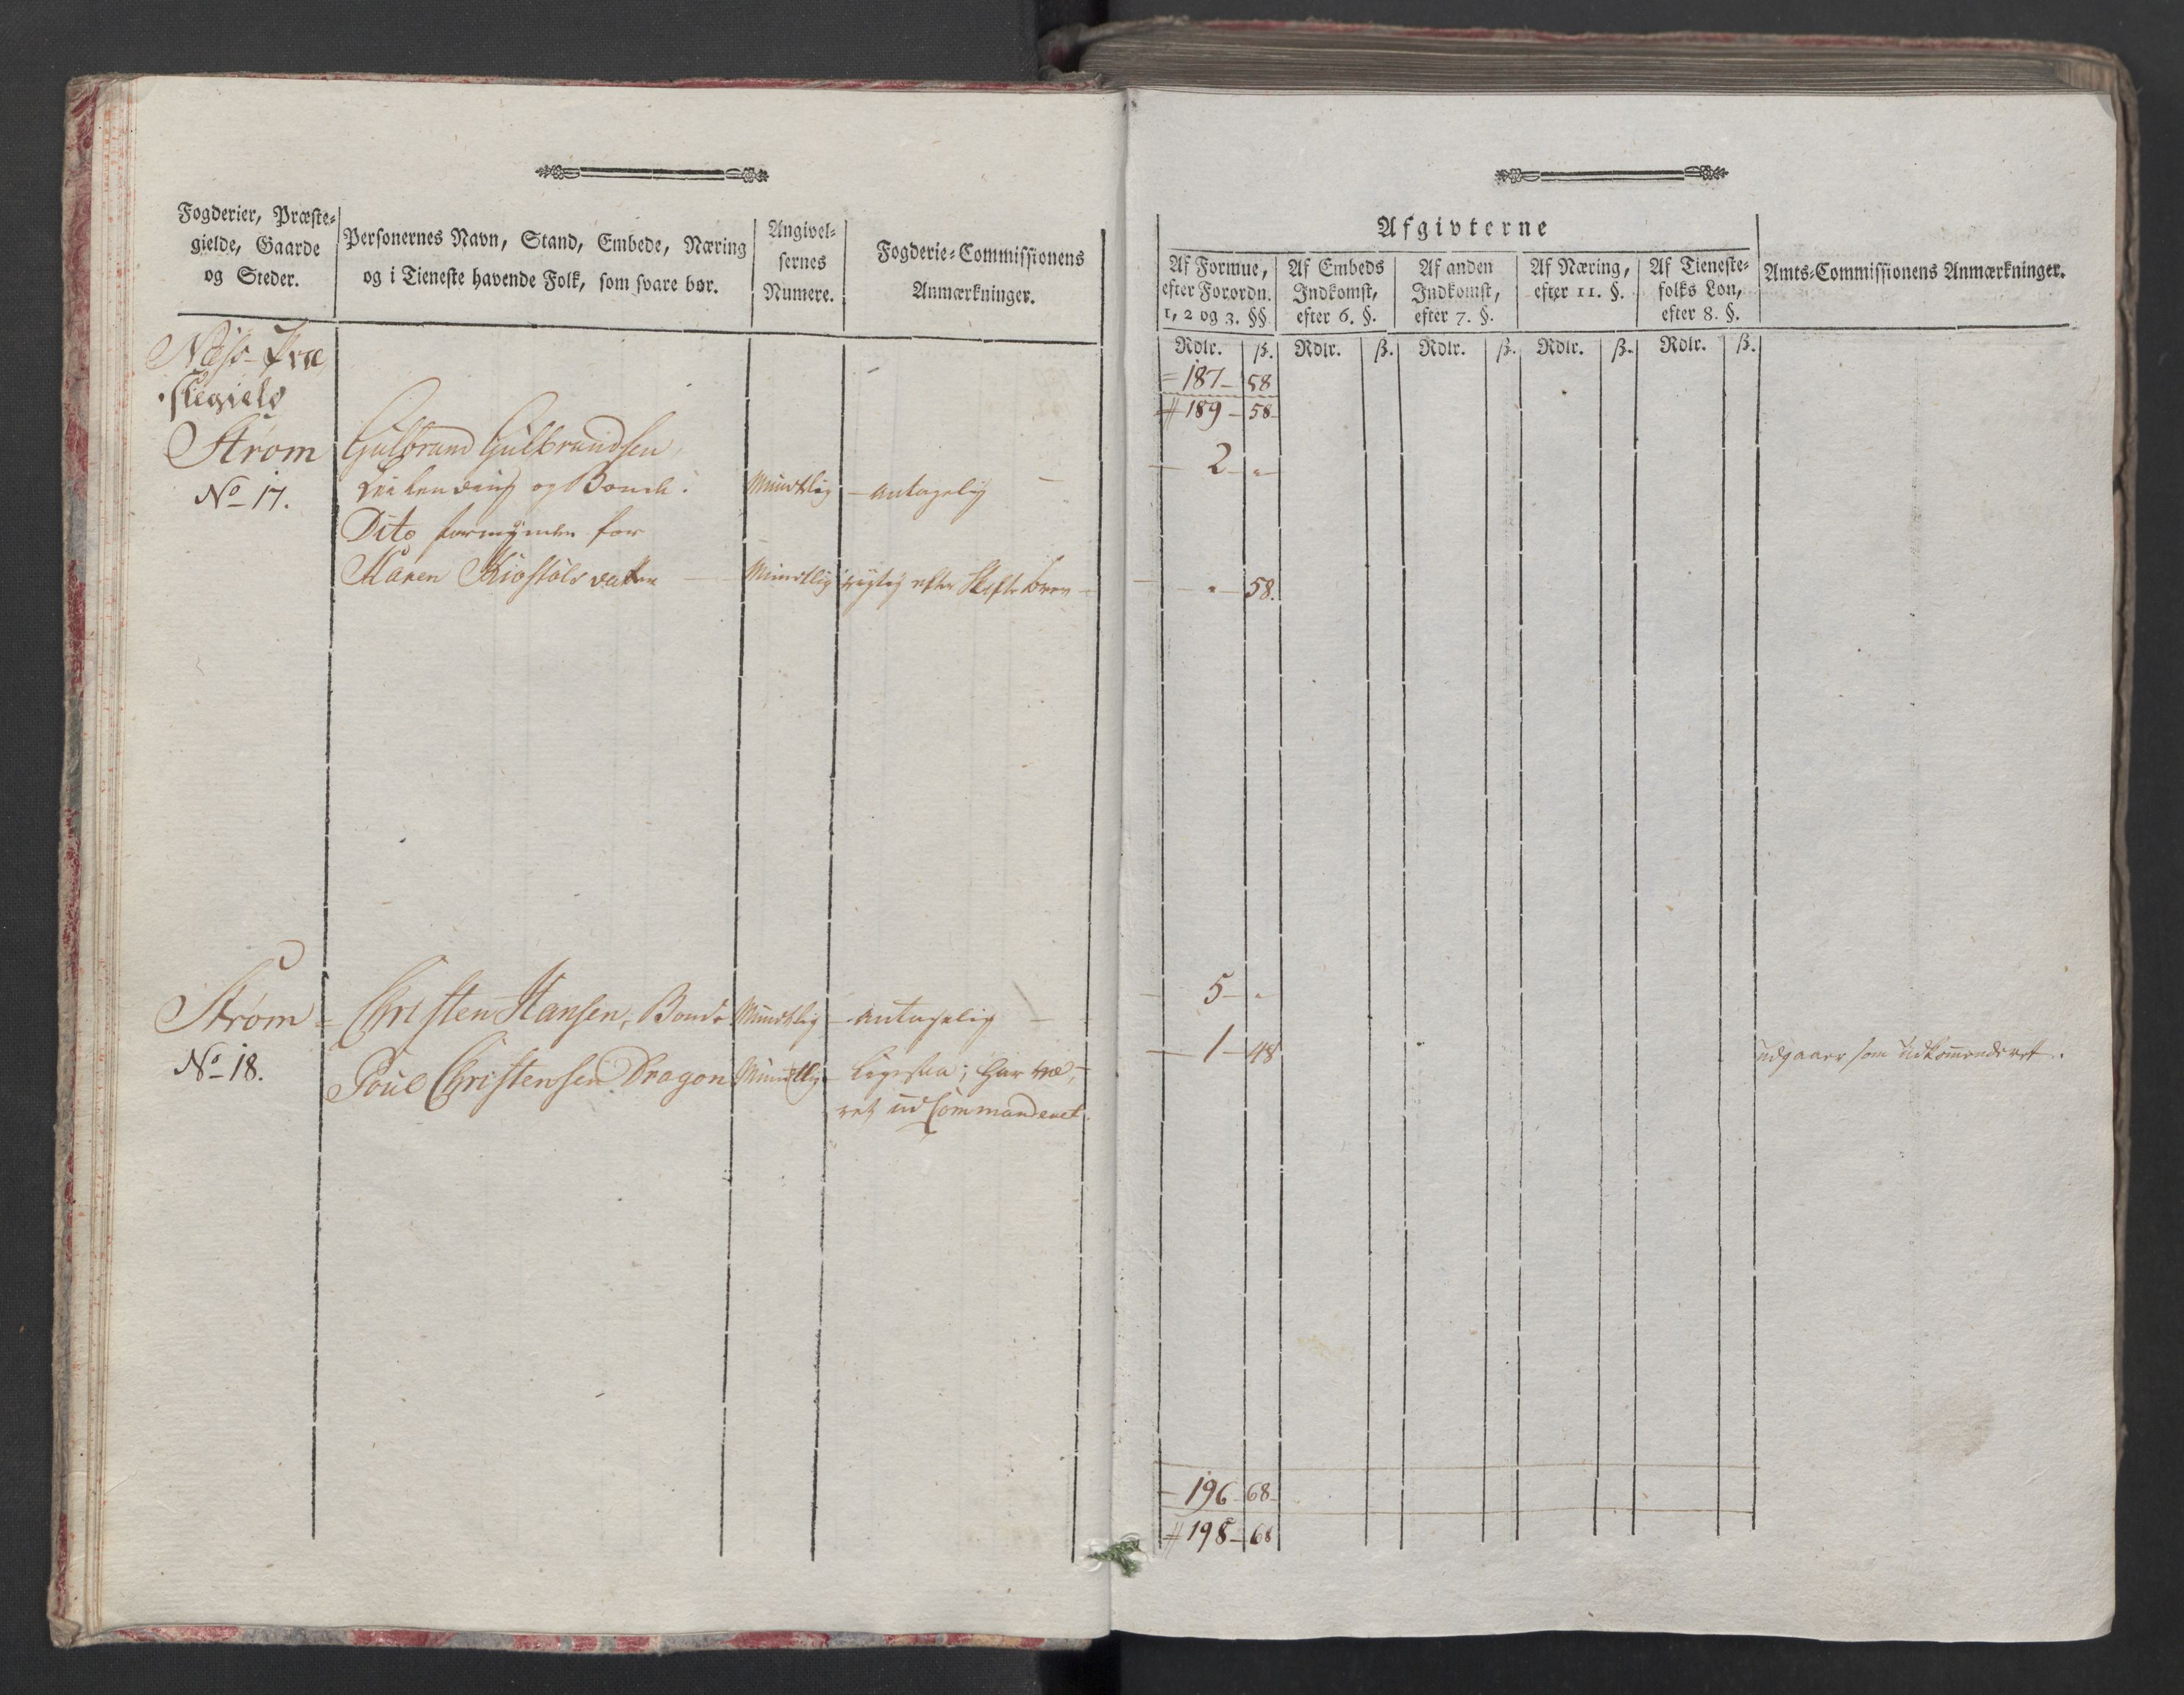 Fogderier, Præste-
gielde, Gaarde
og Steder.
Personernes Navn, Stand, Embede, Næring
og i Tieneste havende Folk, som svare bør.
Angivel-
sernes
Numere.
Fogderie-Commissionens
Anmærkninger.
Næss Præ
stegield
Strøm
No 17.
Gulbrand Gulbrandsen
Leilending og Bonde.
Mundtlig
antagelig
Dito formynder for
Maren Kiostols datter
Mundtlig
rigtig efter Skiftebrev
Strøm
No 18.
Christen Hansen, Bonde
Mundtlig
antagelig
Poul Christensen Dragon
Mundtlig
Ligesaa; har væ-
ret udCommanderet.
Afgivterne
Af Formue,
efter Forordn.
1, 2 og 3. §§
Af Embeds
Indkomst,
efter 6. §.
Af anden
Indkomst,
efter 7. §.
Af Næring,
efter 11. §.
Af Tieneste-
folks Løn,
efter 8. §.
Amts-Commissionens Anmærkninger.
Rdlr. ß. Rdlr. ß. Rdlr. ß. Rdlr. ß. Rdlr. ß.
= 187 - 58
# 189 - 58
2 - "
" - 58.
5 - "
1 - 48
udgaaer som udkommenderet.
196 - 68
# 198 - 68